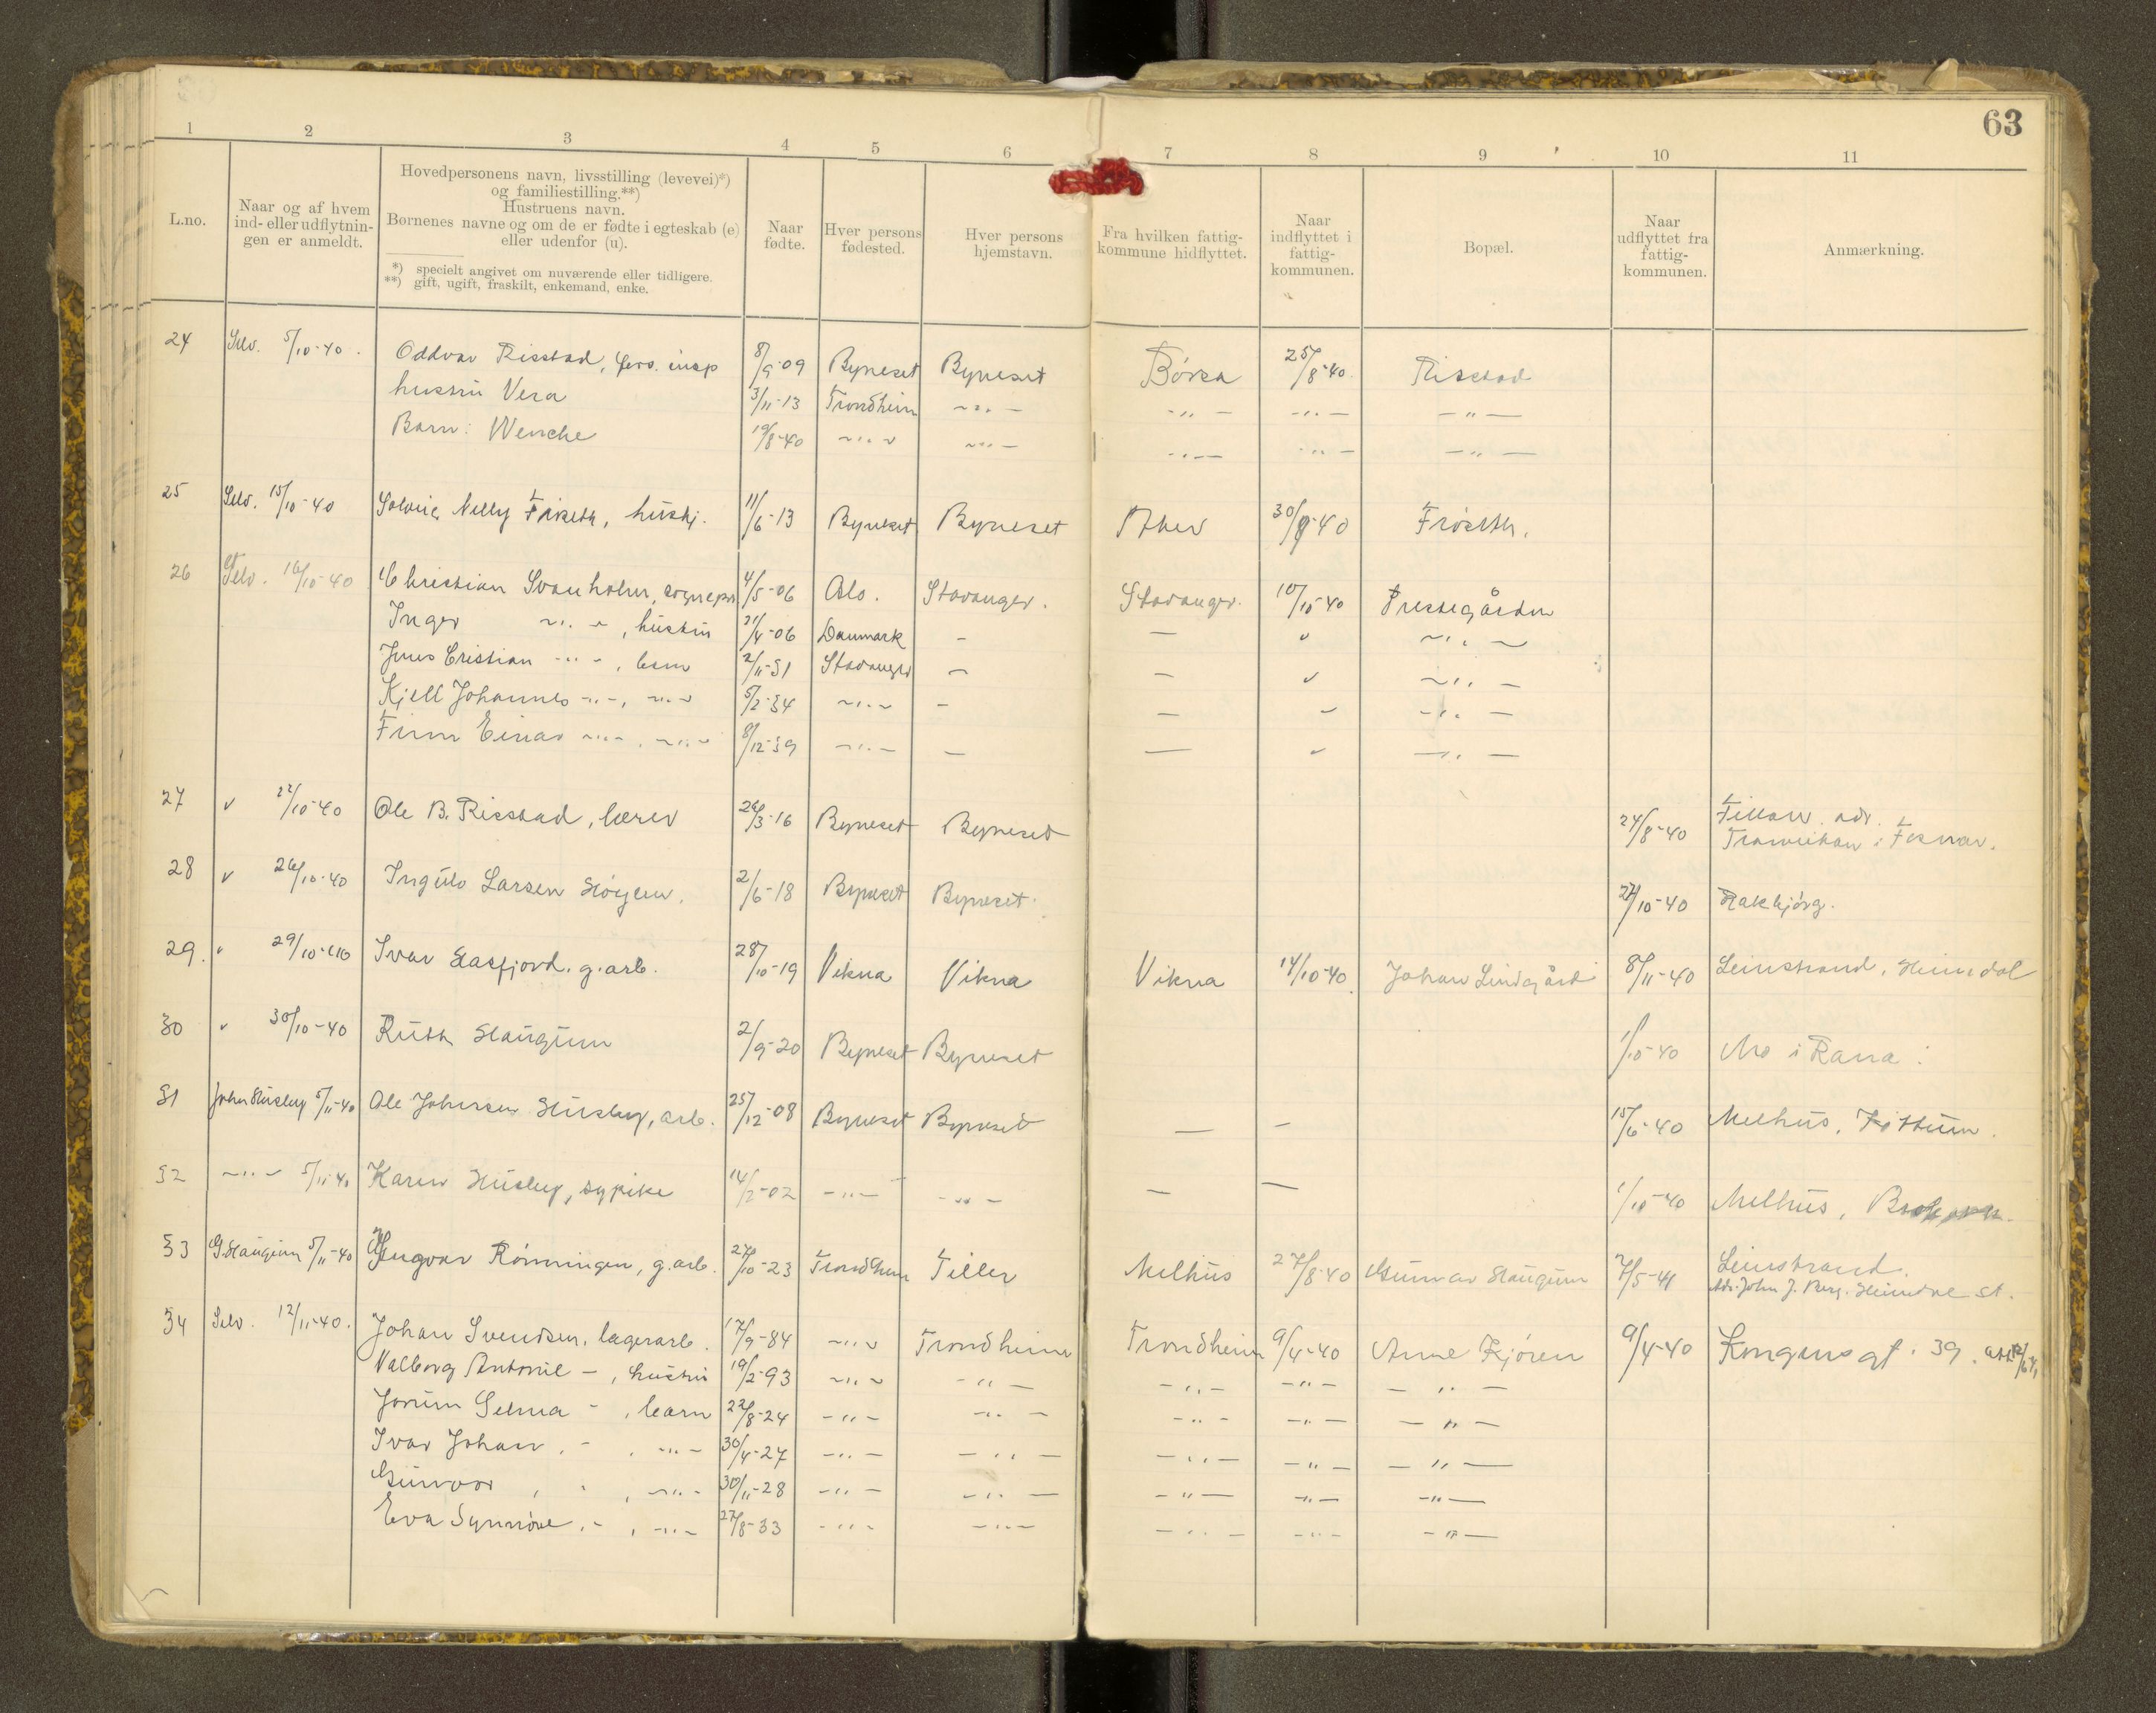 63
1 2 3 4 5 6 7 8 9 10 11
L.no.
Naar og af hvem ind- eller udflytningen er anmeldt.
Hovedpersonens navn, livsstilling (levevei)*) og familiestilling.**)
Hustruens navn.
Børnenes navne og om de er fødte i egteskab (e) eller udenfor (u).
*) specielt angivet om nuværende eller tidligere.
**) gift, ugift, fraskilt, enkemand, enke.
Naar fødte.
Hver persons fødested.
Hver persons hjemstavn.
Fra hvilken fattigkommune hidflyttet.
Naar indflyttet i fattigkommunen.
Bopæl.
Naar udflyttet fra fattigkommunen.
Anmærkning.
24 Selv. 5/10-40. Oddvar Risstad, insp 8/9-09 Byneset Byneset Børsa 25/8-40. Risstad
hustru Vera 3/11-13 Trondheim -"- -"- -"- -"-
Barn: Wenche 19/8-40 -"- -"- -"- -"- -"-
25 Selv. 15/10-40 Solveig Nelly Frøseth, hushj. 11/6-13 Byneset Byneset Aker 30/9-40 Frøseth.
26 Selv. 16/10-40 Christian Svanholm, sognepr 4/5-06 Oslo. Stavanger. Stavanger. 10/10-40 Prestegården
Inger -"-, hustru 21/4-06 Danmark - - " -"-
Jens Cristian -"-, barn 2/11-31 Stavanger - - " -"-
Kjell Johannes -"-, -"- 5/2-34 -"- - - " -"-
Finn Einar -"-, -"- 8/12-39 -"- - - " -"-
27 " 22/10-40 Ole B. Risstad, lærer 26/3-16 Byneset Byneset 24/8-40 Fillan. adr.
Tranvikan i Fosnar.
28 " 26/10-40 Ingulv Larsen Høyem. 2/6-18 Byneset Byneset. 27/10-40 Hakbjørg.
29. " 29/10-40 Ivar Hasfjord. g.arb. 28/10-19 Vikna Vikna Vikna 14/10-40. Johan Lindgård 8/11-40 Leinstrand, Heimdal
30 " 30/10-40 Ruth Haugum 2/9-20 Byneset Byneset 1/10-40 Mo i Rana.
31 John Husby 5/11-40 Ole Johnsen Husby, arb. 25/12-08 Byneset Byneset - - 15/6-40 Melhus.
32 -"- 5/11-40 Karen Husby, sypike 14/2-02 -"- -"- - - 1/10-40 Melhus,
33 G. Haugum 5/11-40 Yngvar Rønningen, g.arb. 27/10-23 Trondheim Tiller Melhus 27/8-40 Gunnar Haugum 7/5-41 Leinstrand.
Adr. John J. Berg. Heimdal st.
34 Selv. 12/11-40. Johan Svendsen, lagerarb. 17/9-84 -"- Trondheim Trondheim 9/4-40 Anne Kjøren 9/4-40 Kongens gt. 39.
Valborg Antonie -, hustru 19/2-93 -"- -"- -"- -"- -"-
Jorunn Selma -, barn 22/8-24 -"- -"- -"- -"- -"-
Ivar Johan, -, -"- 30/4-27 -"- -"- -"- -"- -"-
Gunvor, -, -"- 30/11-28 -"- -"- -"- -"- -"-
Eva Synnøve, -, -"- 27/8-33 -"- -"- -"- -"- -"-